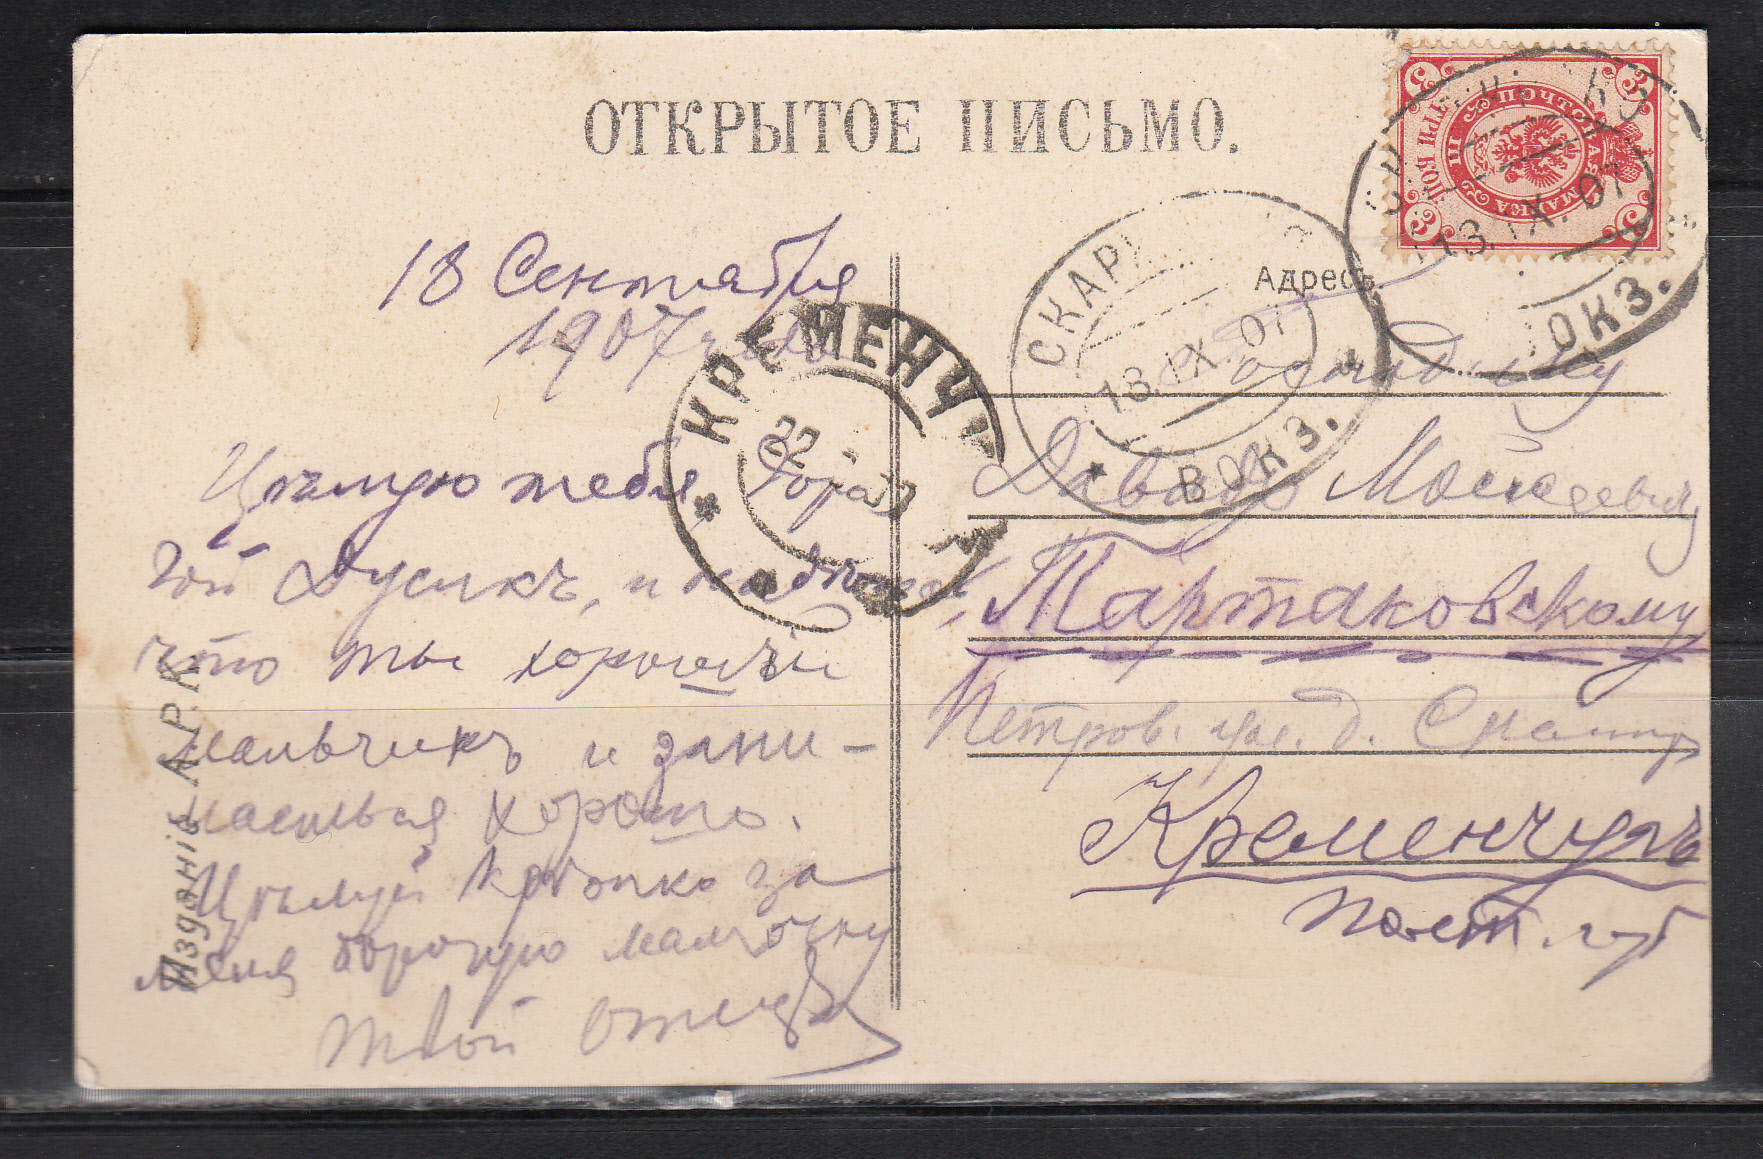 ОТКРЫТОЕ ПИСЬМО.
18 Сентября
1907 года
Цѣлую тебя доро-
гой Дусикъ, и надѣюсь,
что ты хорошій
мальчикъ и зани-
маешься хорошо.
Цѣлуй крѣпко за
меня дорогую мамочку
Твой отецъ
Изданіе А.Р.К.
Адресъ.
Господину
Давиду Моисеевичу
Мартаковскому
Петров. ул. д.
Кременчугъ
Полт. губ
КРЕМЕНЧУ
22
СКАР
13.IX.07
ВОКЗ.
13.IX.07
ВОКЗ.
ПОЧТОВАЯ МАРКА
ТРИ КОП
3
3
3
3